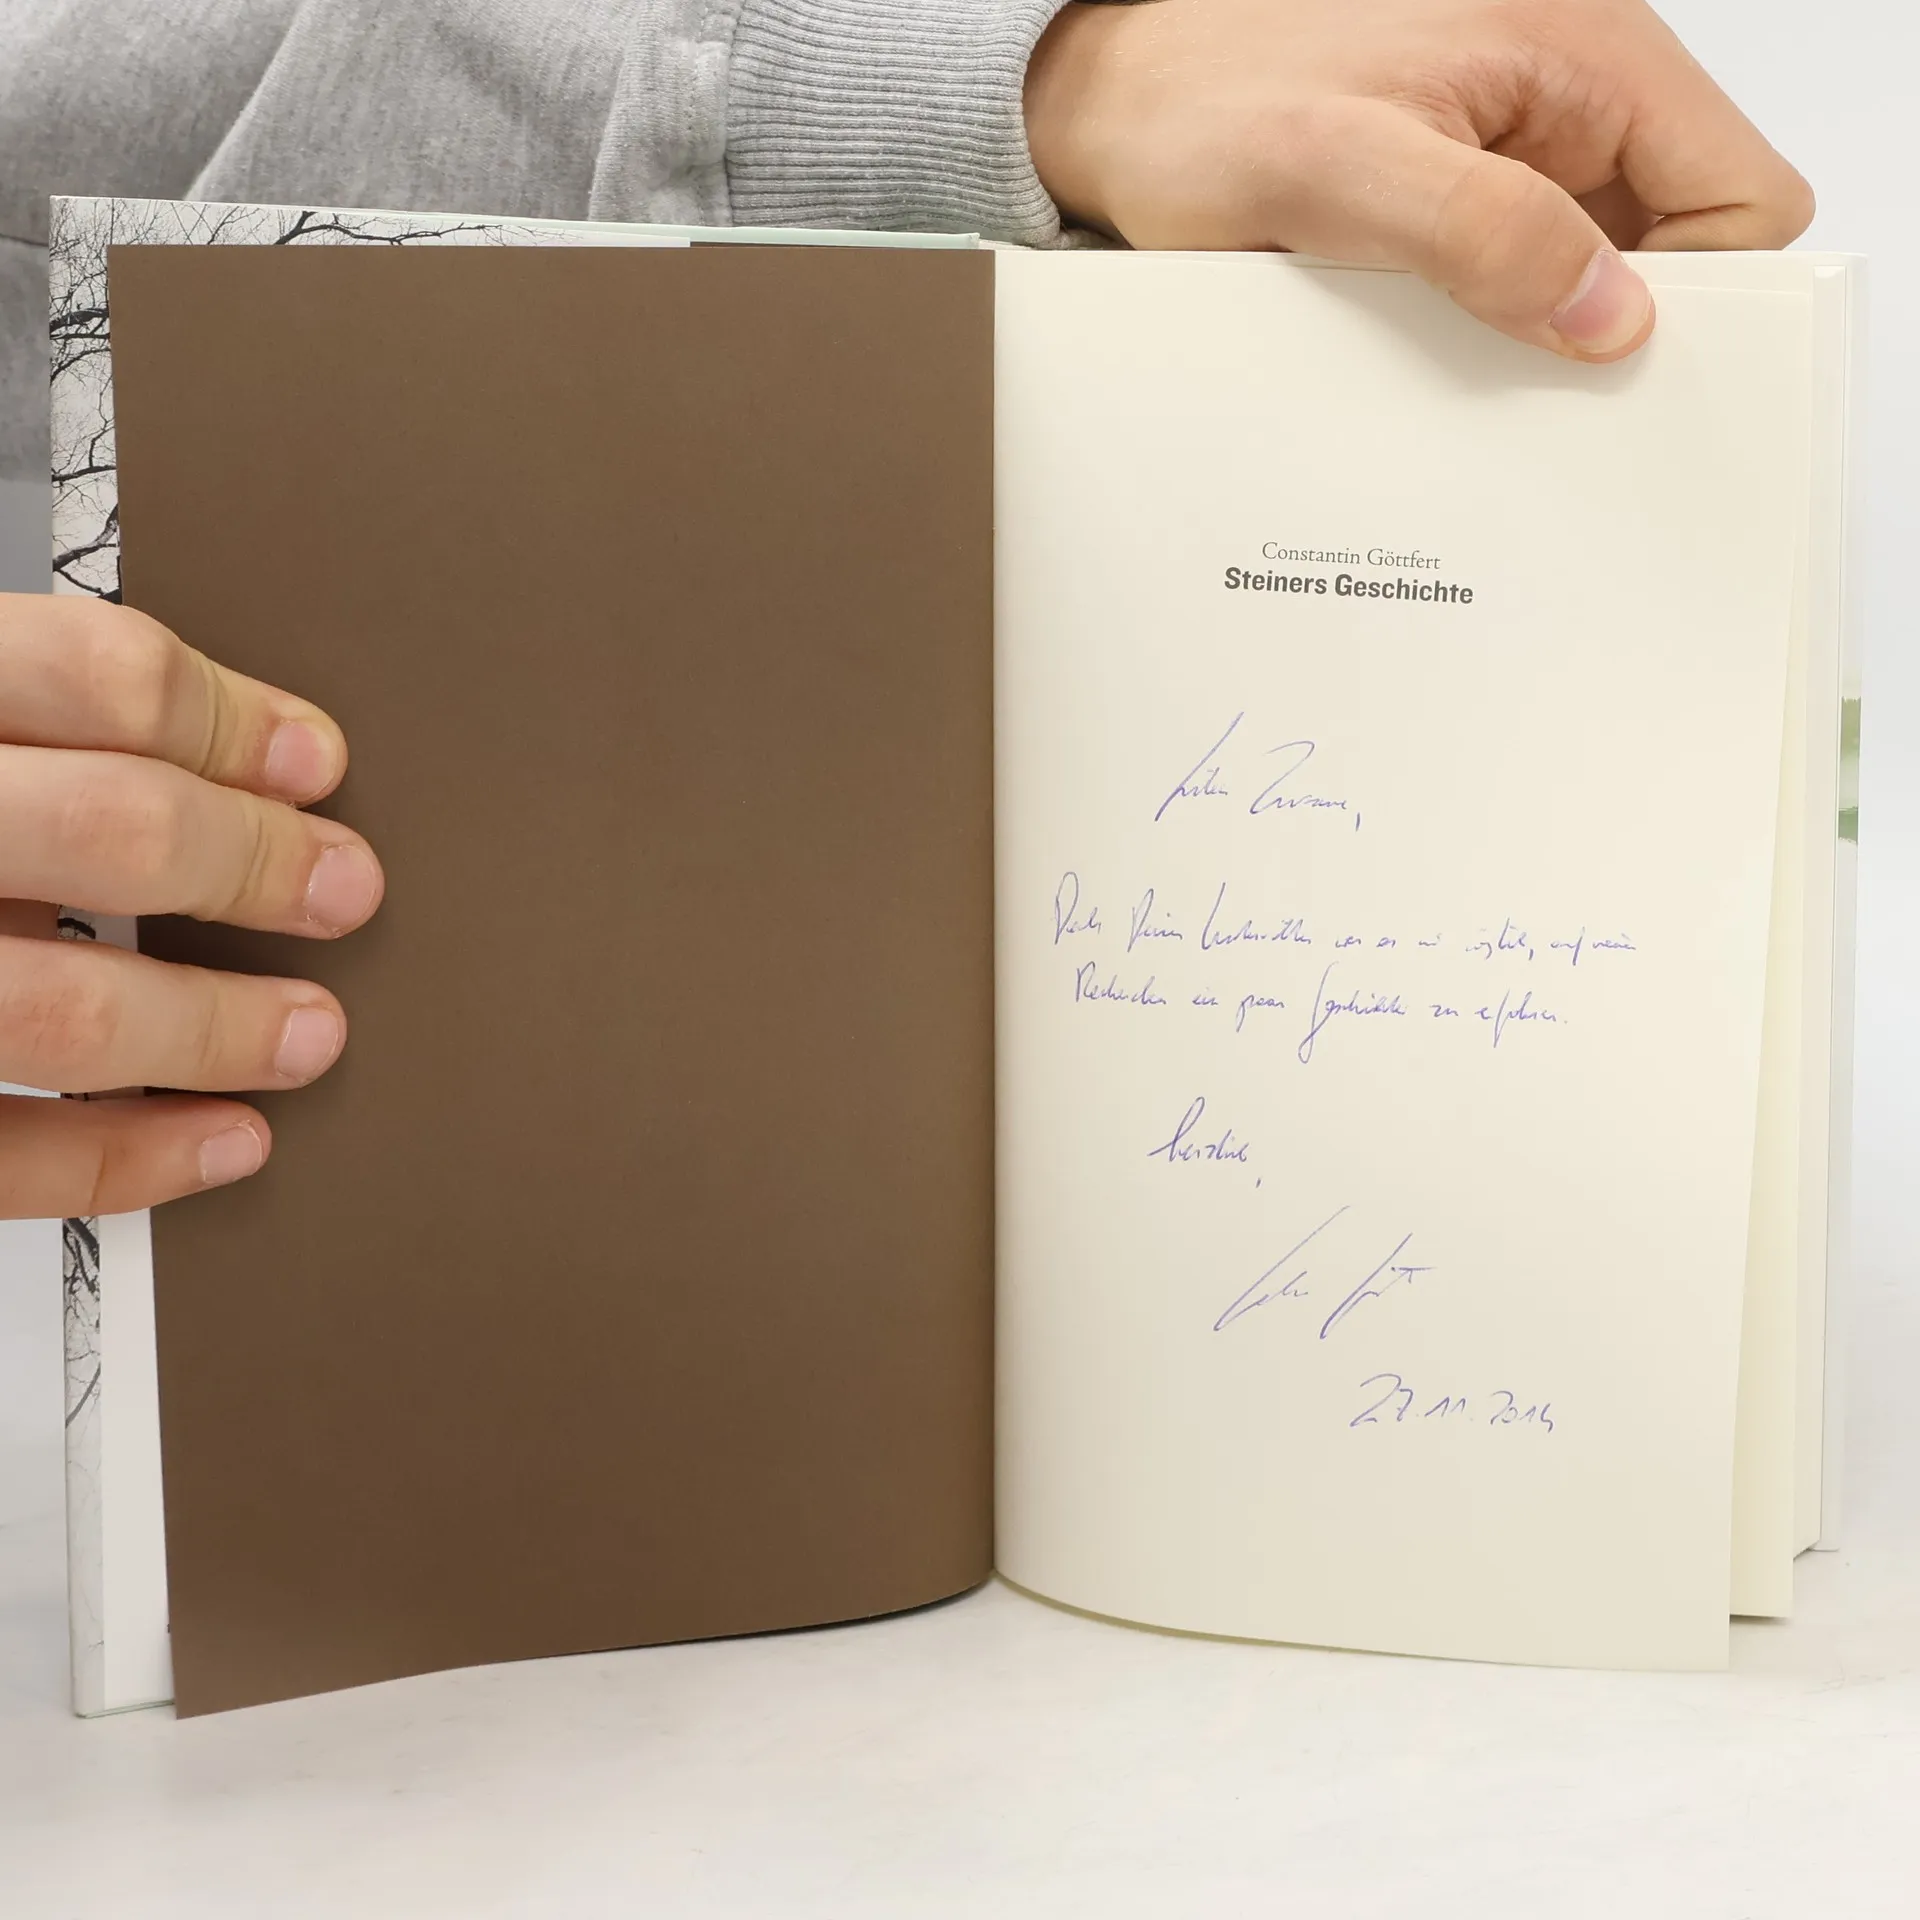 Constantin Göttfert
Steiners Geschichte
Liebe Zuzana,
Dank Deiner war es mir möglich, auf meinen
Recherchen ein paar Geschichten zu erfahren.
herzlich,
27.11.2014